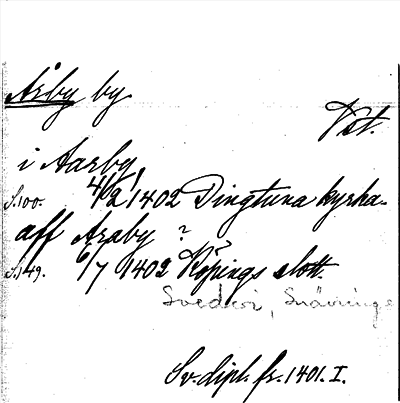 Åsby by
Vst.
i Aarby
S. 100. 4/2 1402 Dingtuna kyrka.
aff Araby ?
S. 149. 6/7 1402 Köpings slott.
Svedvi, Snävringe
Sv. dipl. fr. 1401. I.